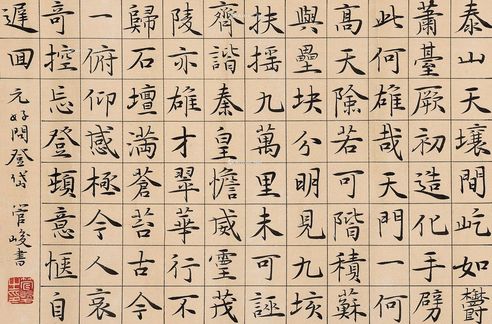 泰山天壤間屹如鬱
蕭臺厥初造化手劈
此何雄哉天門一何
高天險若可階積蘇
與壘块分明見九垓
扶搖九萬里未可誣
齊諧秦皇憺威靈茂
陵亦雄才翠華行不
歸石壇滿蒼苔古今
一俯仰感極令人哀
奇控忘登頓意愜自
遲回 元好問登岱 管峻書